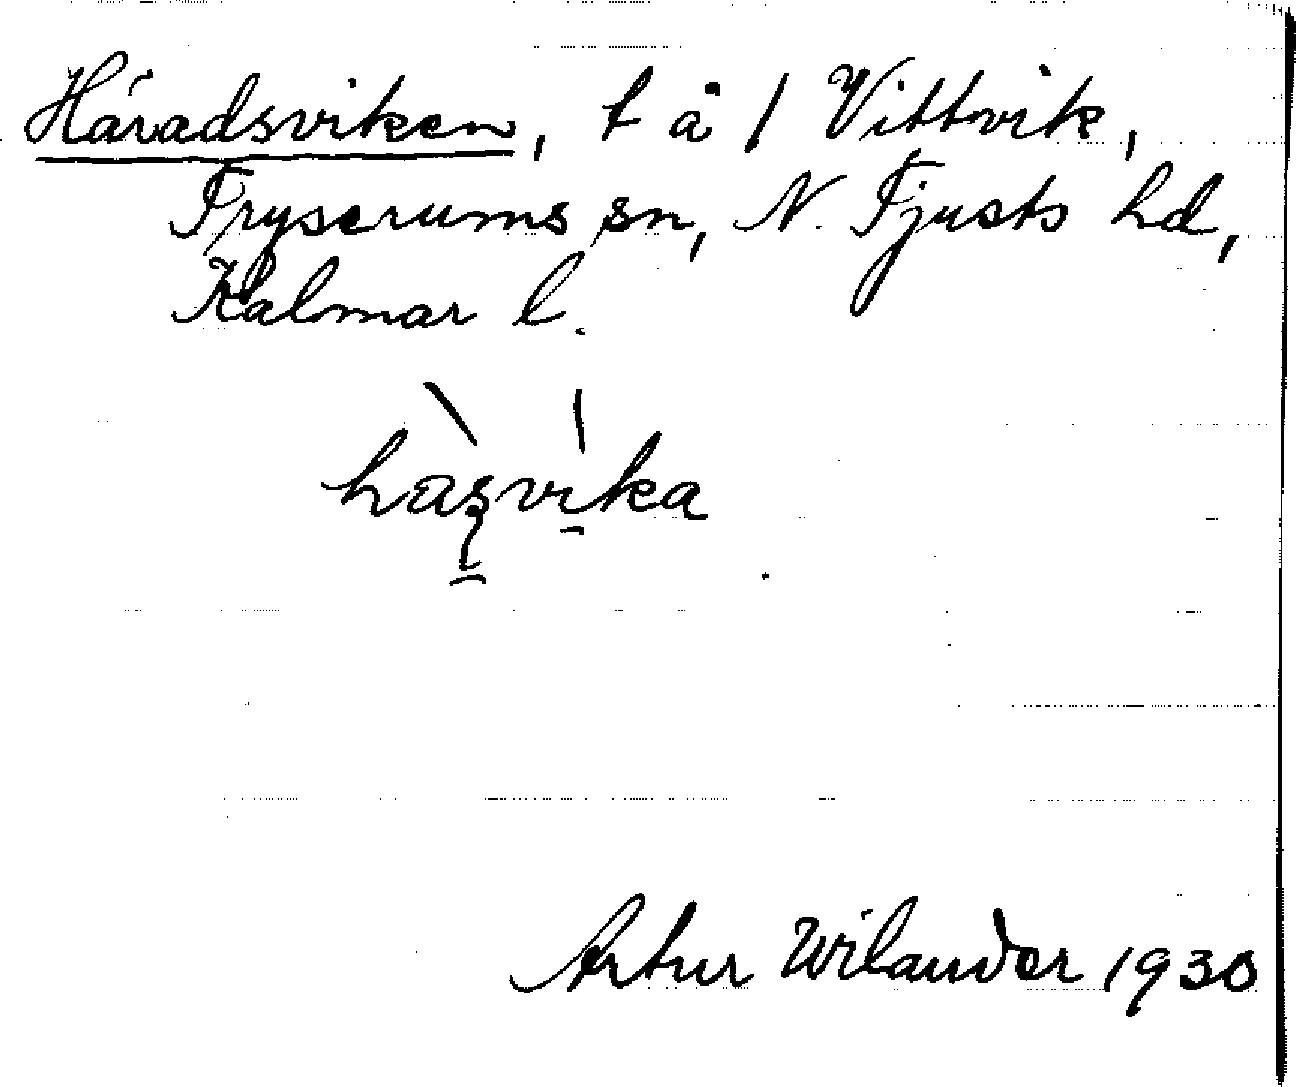 Häradsviken, t å / Vittvik,
Tryserums sn, N. Tjusts hd,
Kalmar l.
Artur Wilander 1930